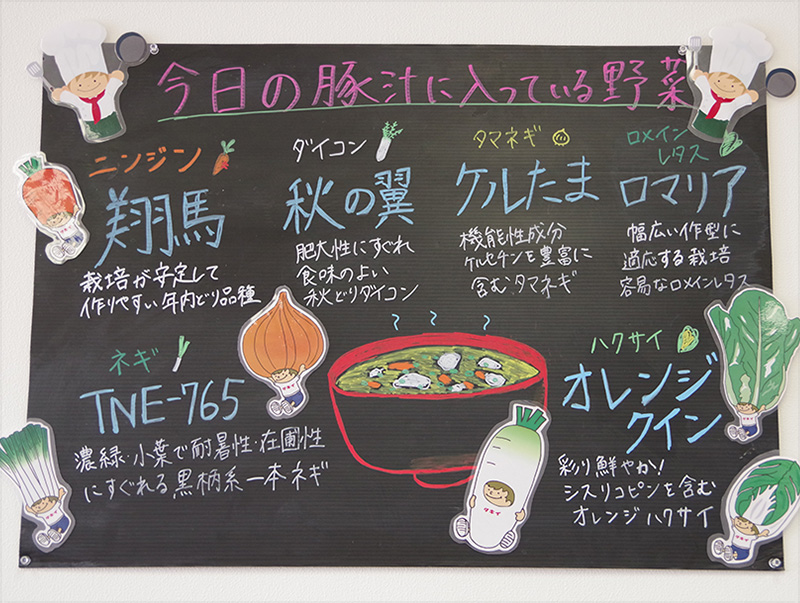 今日の豚汁に入っている野菜
ニンジン
翔馬
栽培が安定して
作りやすい年内どり品種
ダイコン
秋の翼
肥大性にすぐれ
食味のよい
秋どりダイコン
タマネギ
ケルたま
機能性成分
ケルセチンを豊富に
含むタマネギ
ロメイン
レタス
ロマリア
幅広い作型に
適応する栽培
容易なロメインレタス
ネギ
TNE-765
濃緑・小葉で耐暑性・在圃性
にすぐれる黒柄系一本ネギ
ハクサイ
オレンジ
クイン
彩り鮮やか!
シスリコピンを含む
オレンジハクサイ
タキイ
タキイ